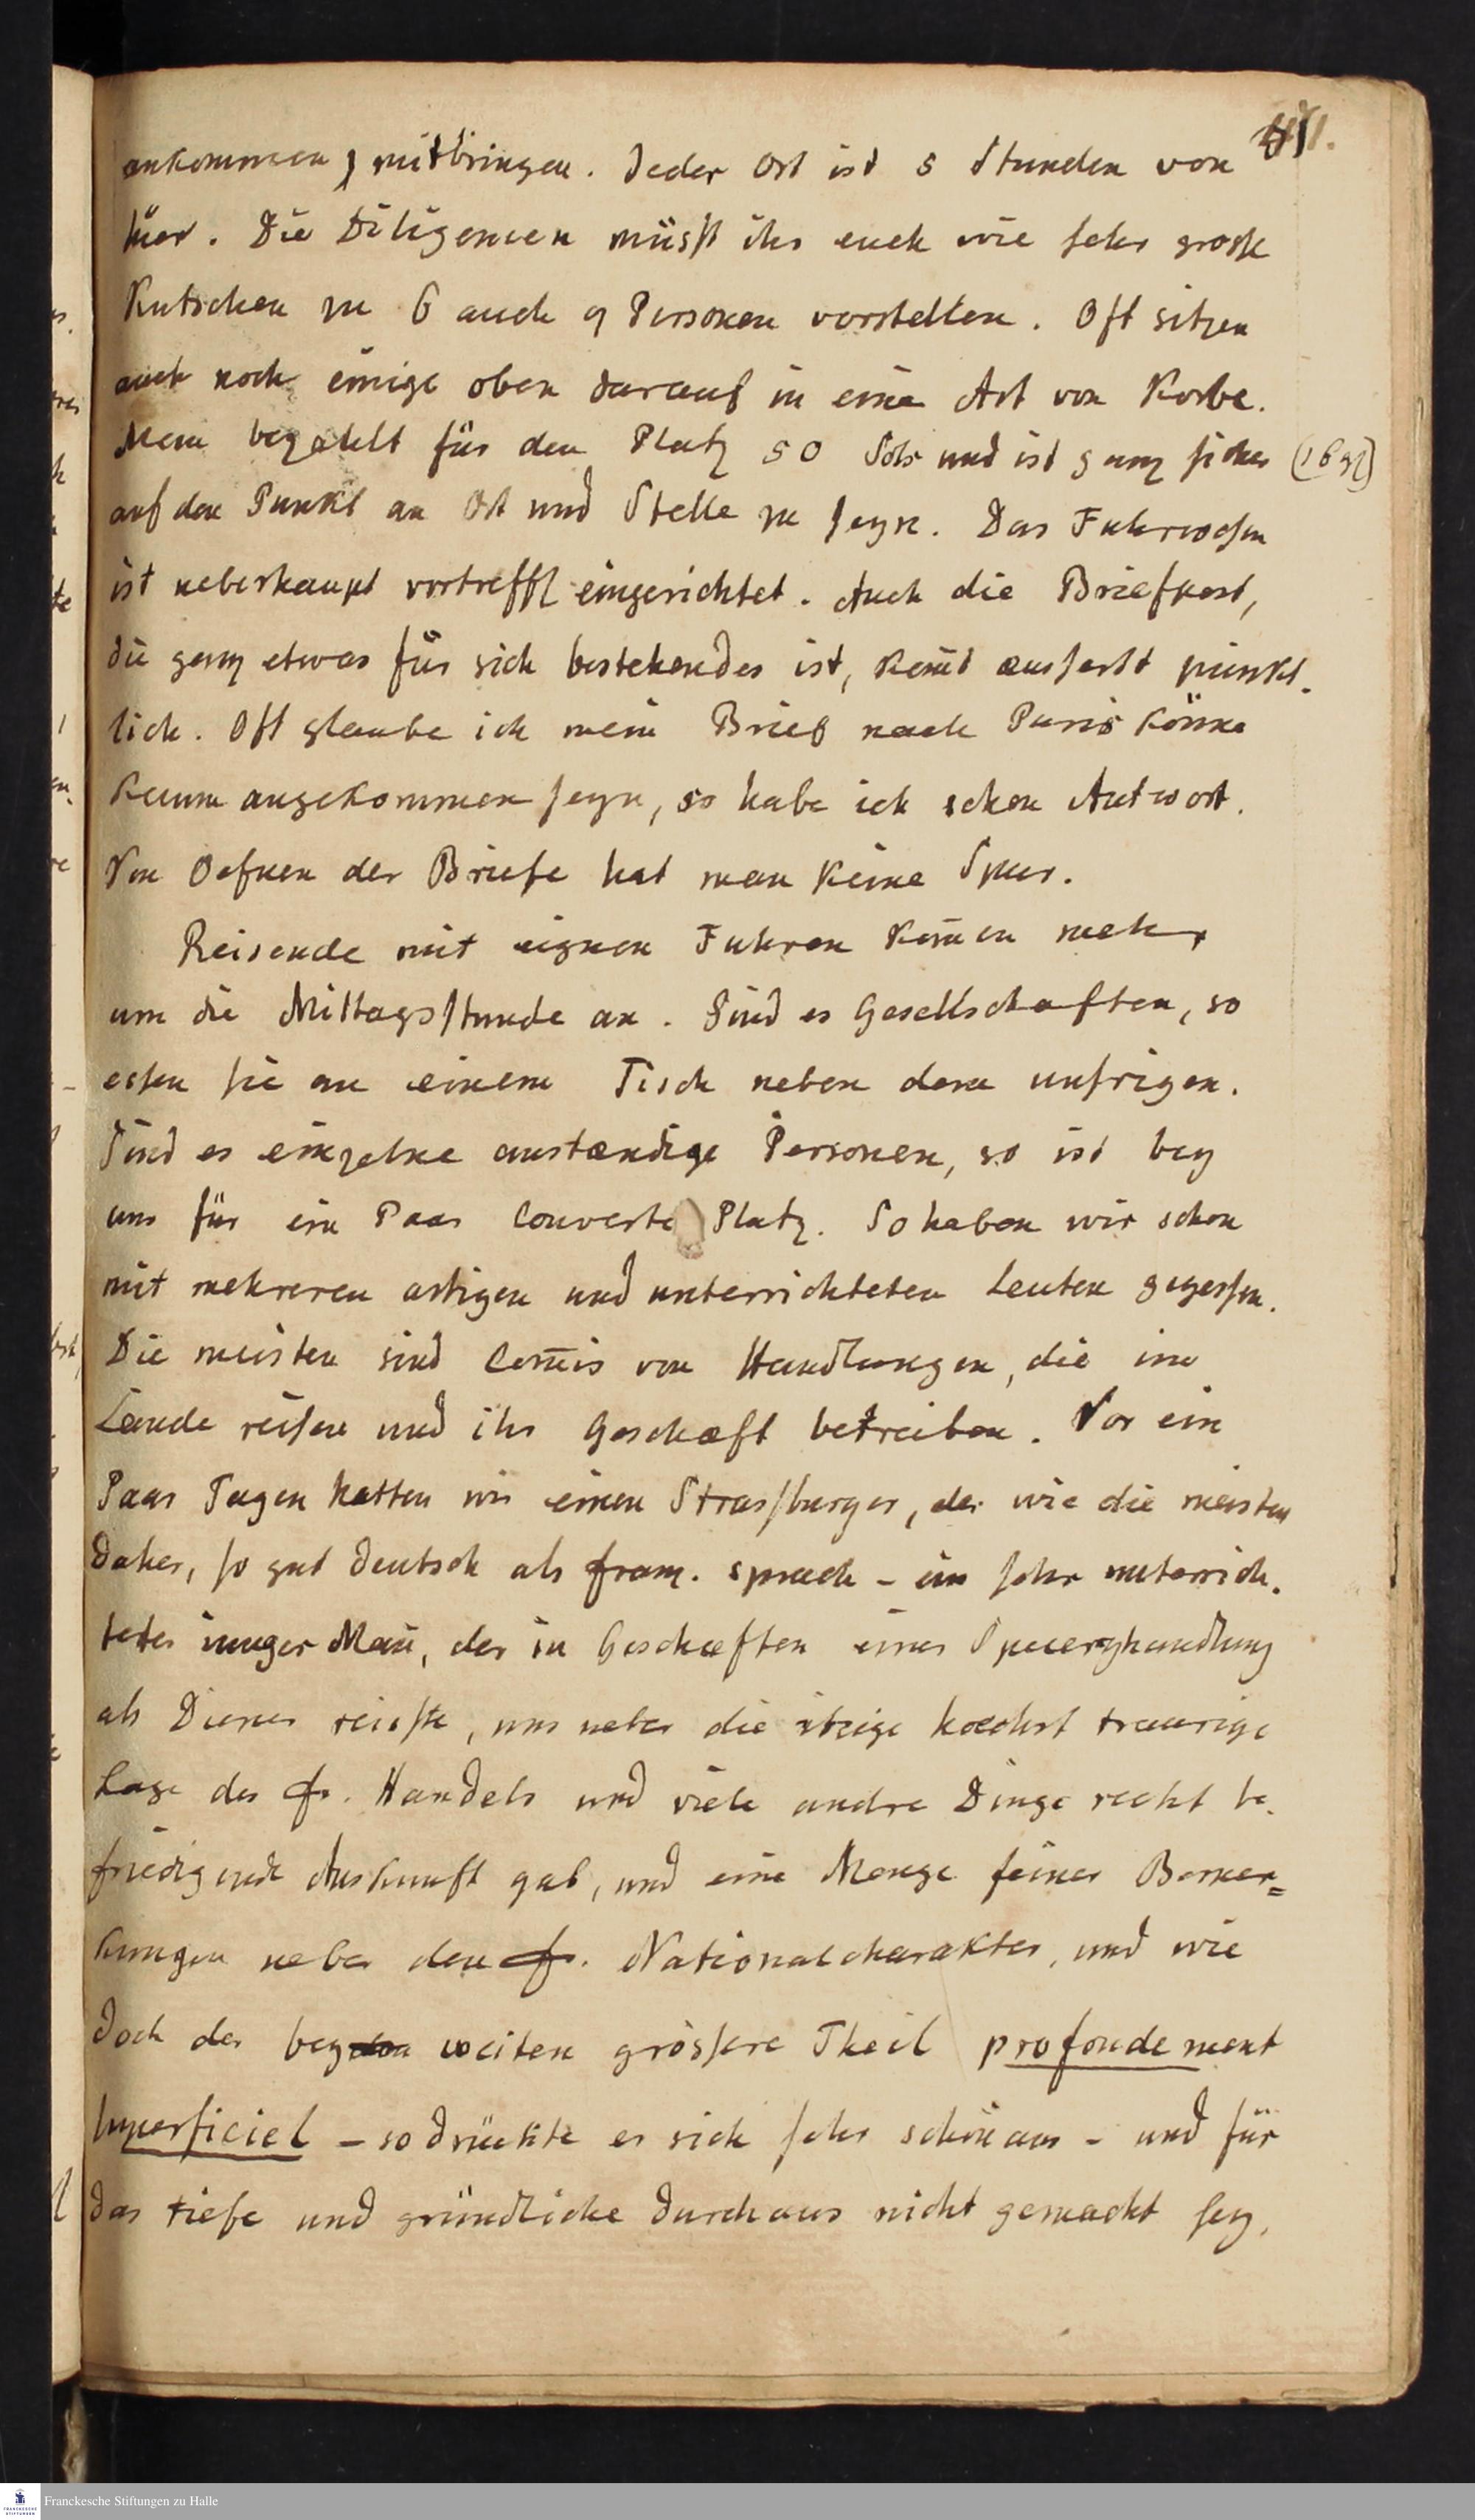 41.
ankommen, mitbringen. Jeder Ort ist 8 Stunden von
hier. Die Diligencen müsst ihr euch wie sehr grosse
Kutschen zu 6 auch 9 Personen vorstellen. Oft sitzen
auch noch einige oben darauf in eine Art von Korbe.
Man bezahlt für den Platz 50 Sols und ist ganz sicher (16 gl)
auf den Punkt an Ort und Stelle zu seyn. Das Fuhrwesen
ist ueberhaupt vortreffl eingerichtet. Auch die Briefpost,
die ganz etwas für sich bestehendes ist, kom̅t æusserst pünkt-
lich. Oft glaube ich mein Brief nach Paris könne
kaum angekommen seyn, so habe ich schon Antwort.
Von Oefnen der Briefe hat man keine Spur.
Reisende mit eignen Fuhren kom̅en mehr
um die Mittagsstunde an. Sind es Gesellschaften, so
essen sie an einem Tisch neben dem unsrigen.
Sind es einzelne anstændige Personen, so ist bey
uns für ein Paar Couverte Platz. So haben wir schon
mit mehreren artigen und unterrichteten Leuten gegessen.
Die meisten sind Com̅is von Handlungen, die im
Lande reisen und ihr Geschæft betreiben. Vor ein
Paar Tagen hatten wir einen Strassburger, der wie die meisten
daher, so gut deutsch als franz. sprach - ein sehr unterrich-
teter iunger Man̅, der in Geschæften einer Specereyhandlung
als Diener reisste, uns ueber die itzige hoechst traurige
Lage des fr. Handels und viele andre Dinge recht be-
friedigende Auskunft gab, und eine Menge feiner Bemer-
kungen ueber den fr. Nationalcharakter, und wie
doch der bey weiten grössere Theil profondement
superficiel - so drückte er sich sehr schön aus - und für
das tiefe und gründliche durchaus nicht gemacht sey,
Franckesche Stiftungen zu Halle